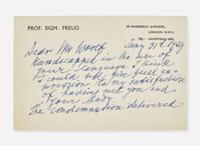 PROF. SIGM. FREUD
20 MARESFIELD GARDENS,
LONDON, N.W.3.
TEL: HAMPSTEAD 2002.
Jany 31st 1939
Dear Mr Woolf
Handicapped in the use of
your language I think
I could not give full ex-
pression to my satisfaction
of having met you and
your lady.
The condemnation delivered